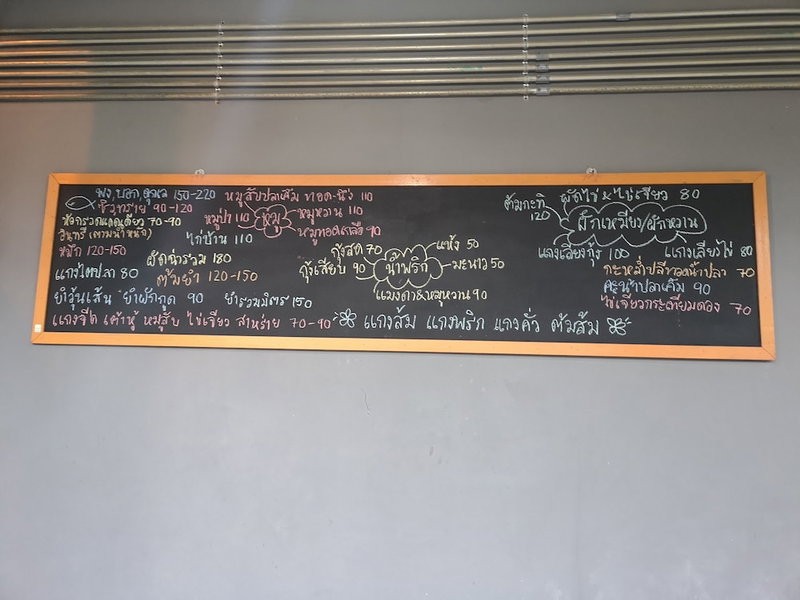 พง, บอก, ดุกเล 150-220
ซิวทราย 90-120
หัวกรวดแดดเดียว 70-90
อินทรี (ตามน้ำหนัก)
หมึก 120-150
แกงไตปลา 80
ยำวุ้นเส้น ยำผักกูด 90
ยำรวมมิตร 150
แกงจืด เต้าหู้ หมูสับ ไข่เจียว สาหร่าย 70-90
หมูสับปลาเค็ม ทอด-นึ่ง 110
หมูป่า 110
หมู
หมูหวาน 110
หมูทอดเกลือ 90
ไก่บ้าน 110
ผัดฉ่ารวม 180
ต้มยำ 120-150
น้ำพริก
กุ้งสด 70
แห้ง 50
กุ้งเสียบ 90
มะนาว 50
แมงดา&หมูหวาน 90
แกงส้ม แกงพริก แกงคั่ว ต้มส้ม
ผักเหมียง/ผักหวาน
ต้มกะทิ 120
ผัดไข่ & ไข่เจียว 80
แกงเลียงกุ้ง 100
แกงเลียงไข่ 80
กะหล่ำปลีทอดน้ำปลา 70
คะน้าปลาเค็ม 90
ไข่เจียวกระเทียมดอง 70